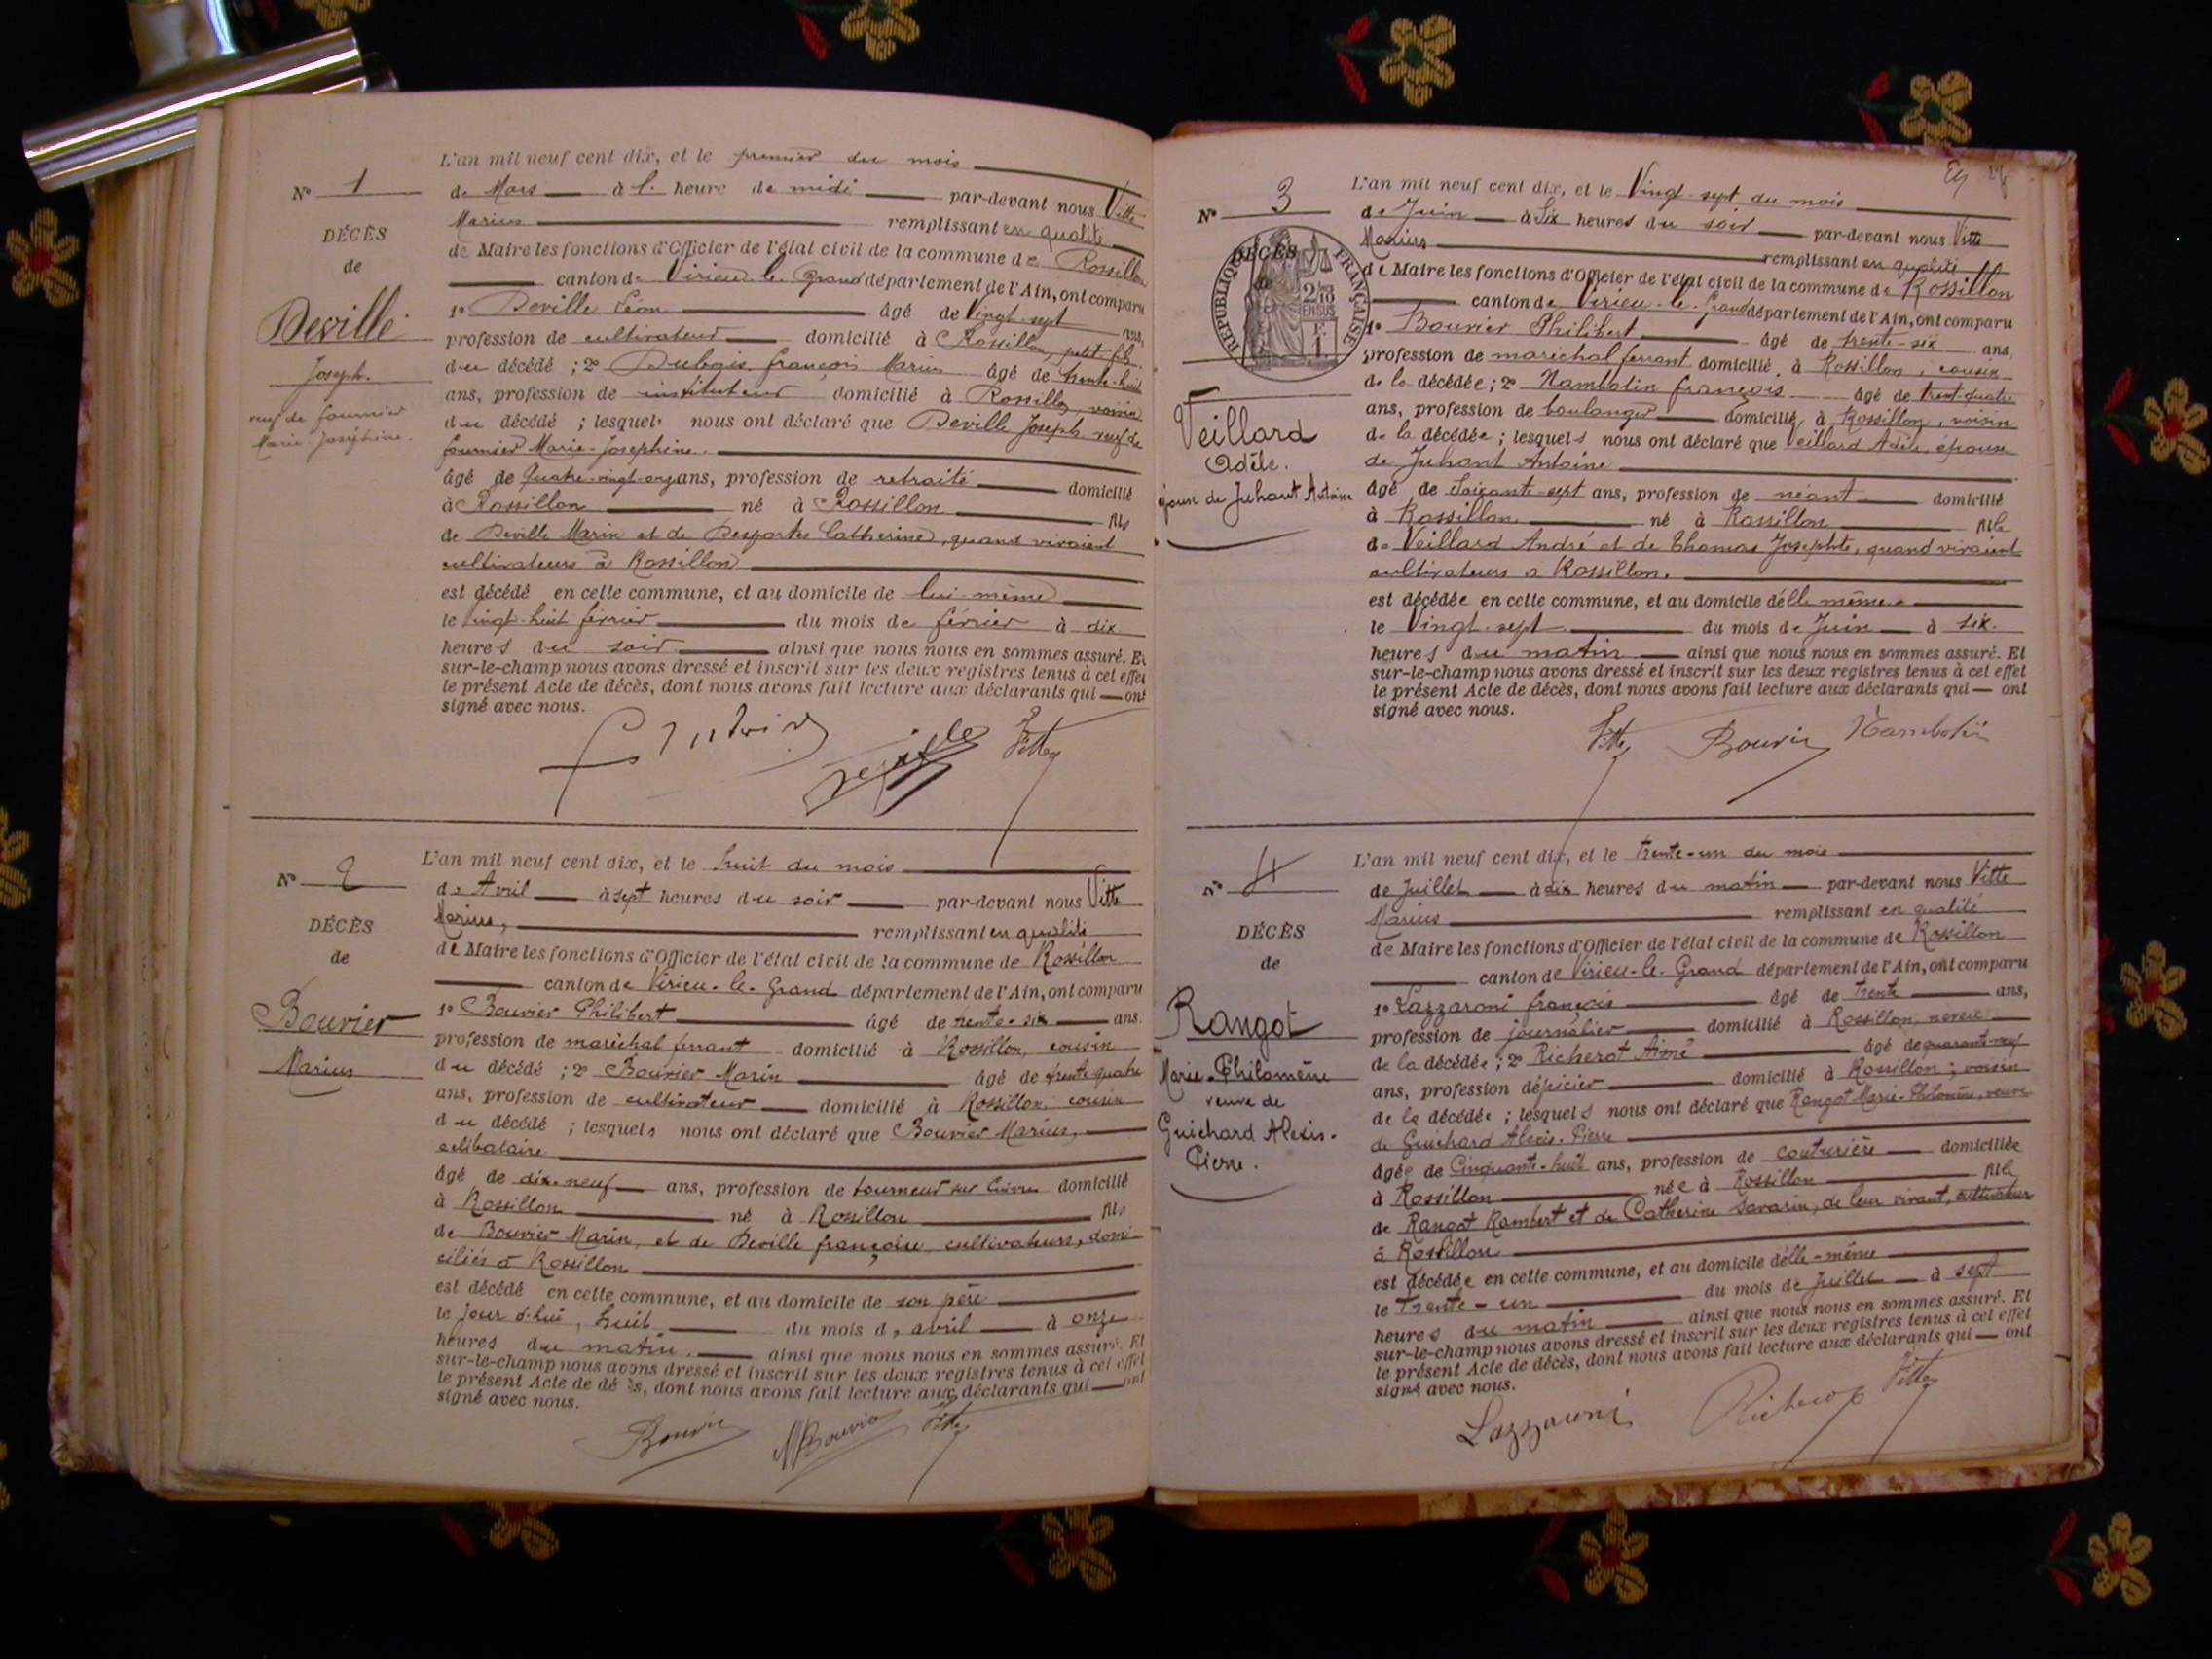 N° 1
DÉCÈS
de
Deville
Joseph.
veuf de Fournier
Marie-Joséphine.
L'an mil neuf cent dix, et le premier du mois
de Mars à l' heure de midi par-devant nous Vitte
Marius remplissant en qualité
de Maire les fonctions d'Officier de l'état civil de la commune de Rossillon
canton de Virieu-le-Grand département de l'Ain, ont comparu
1° Deville Léon âgé de Vingt-sept ans,
profession de cultivateur domicilié à Rossillon, petit-fils
du décédé ; 2° Dubois François Marius âgé de trente-huit
ans, profession de instituteur domicilié à Rossillon, voisin
du décédé ; lesquels nous ont déclaré que Deville Joseph veuf de
Fournier Marie-Josephine.
âgé de Quatre-vingt-onze ans, profession de retraité domicilié
à Rossillon né à Rossillon fils
de Deville Marin et de Desportes Catherine, quand vivaient
cultivateurs à Rossillon
est décédé en cette commune, et au domicile de lui-même
le vingt-huit février du mois de février à dix
heures du soir ainsi que nous nous en sommes assuré. Et
sur-le-champ nous avons dressé et inscrit sur les deux registres tenus à cet effet
le présent Acte de décès, dont nous avons fait lecture aux déclarants qui ont
signé avec nous.
Deville Vitte
N° 2
DÉCÈS
de
Bouvier
Marius
L'an mil neuf cent dix, et le huit du mois
de Avril à sept heures du soir par-devant nous Vitte
Marius, remplissant en qualité
de Maire les fonctions d'Officier de l'état civil de la commune de Rossillon
canton de Virieu-le-Grand département de l'Ain, ont comparu
1° Bouvier Philibert âgé de trente-six ans.
profession de maréchal ferrant domicilié à Rossillon, cousin
du décédé ; 2° Bouvier Marin âgé de trente quatre
ans, profession de cultivateur domicilié à Rossillon, cousin
du décédé ; lesquels nous ont déclaré que Bouvier Marius,
célibataire
âgé de dix-neuf ans, profession de tourneur sur cuivre domicilié
à Rossillon né à Rossillon fils
de Bouvier Marin, et de Deville françoise, cultivateurs, domi
ciliés à Rossillon
est décédé en cette commune, et au domicile de son père
le Jour d'hui, huit du mois d'avril à onze
heures du matin. ainsi que nous nous en sommes assuré. Et
sur-le-champ nous avons dressé et inscrit sur les deux registres tenus à cet effet
le présent Acte de décès, dont nous avons fait lecture aux déclarants qui ont
signé avec nous.
Bouvier M Bouvier Vitte
N° 3
DÉCÈS
de
RÉPUBLIQUE FRANÇAISE
2/10
EN SUS
F.
1.
Veillard
Adèle.
épouse de Juhant Antoine
L'an mil neuf cent dix, et le Vingt-sept du mois
de Juin à Six heures du soir par-devant nous Vitte
Marius remplissant en qualité
de Maire les fonctions d'Officier de l'état civil de la commune de Rossillon
canton de Virieu-le-Grand département de l'Ain, ont comparu
1° Bouvier Philibert âgé de trente-six ans,
profession de maréchal ferrant domicilié à Rossillon, cousin
de la décédée ; 2° Nambotin françois âgé de trente-quatre
ans, profession de boulanger domicilié, à Rossillon, voisin
de la décédée ; lesquels nous ont déclaré que Veillard Adèle, épouse
de Juhant Antoine
âgé de Soixante-sept ans, profession de néant domicilié
à Rossillon né à Rossillon fille
de Veillard André et de Thomas Josephte, quand vivaient
cultivateurs à Rossillon.
est décédée en cette commune, et au domicile d'elle même
le Vingt-sept du mois de Juin à six
heures du matin ainsi que nous nous en sommes assuré. Et
sur-le-champ nous avons dressé et inscrit sur les deux registres tenus à cet effet
le présent Acte de décès, dont nous avons fait lecture aux déclarants qui ont
signé avec nous.
Vitte Bouvier Nambotin
N° 4
DÉCÈS
de
Rangot
Marie-Philomène
veuve de
Guichard Alexis-
Pierre.
L'an mil neuf cent dix, et le trente-un du mois
de Juillet à dix heures du matin par-devant nous Vitte
Marius remplissant en qualité
de Maire les fonctions d'Officier de l'état civil de la commune de Rossillon
canton de Virieu-le-Grand département de l'Ain, ont comparu
1° Lazzaroni françois âgé de trente ans,
profession de journalier domicilié à Rossillon, neveu
de la décédée ; 2° Richerot Aimé âgé de quarante-neuf
ans, profession d'épicier domicilié à Rossillon, voisin
de la décédée ; lesquels nous ont déclaré que Rangot Marie-Philomène, veuve
de Guichard Alexis-Pierre
âgée de Cinquante-huit ans, profession de couturière domiciliée
à Rossillon née à Rossillon fille
de Rangot Rambert et de Catherine Savarin, de leur vivant, cultivateurs
à Rossillon
est décédée en cette commune, et au domicile d'elle-même
le Trente-un du mois de Juillet à sept
heures du matin ainsi que nous nous en sommes assuré. Et
sur-le-champ nous avons dressé et inscrit sur les deux registres tenus à cet effet
le présent Acte de décès, dont nous avons fait lecture aux déclarants qui ont
signé avec nous.
Lazzaroni Richerot Vitte